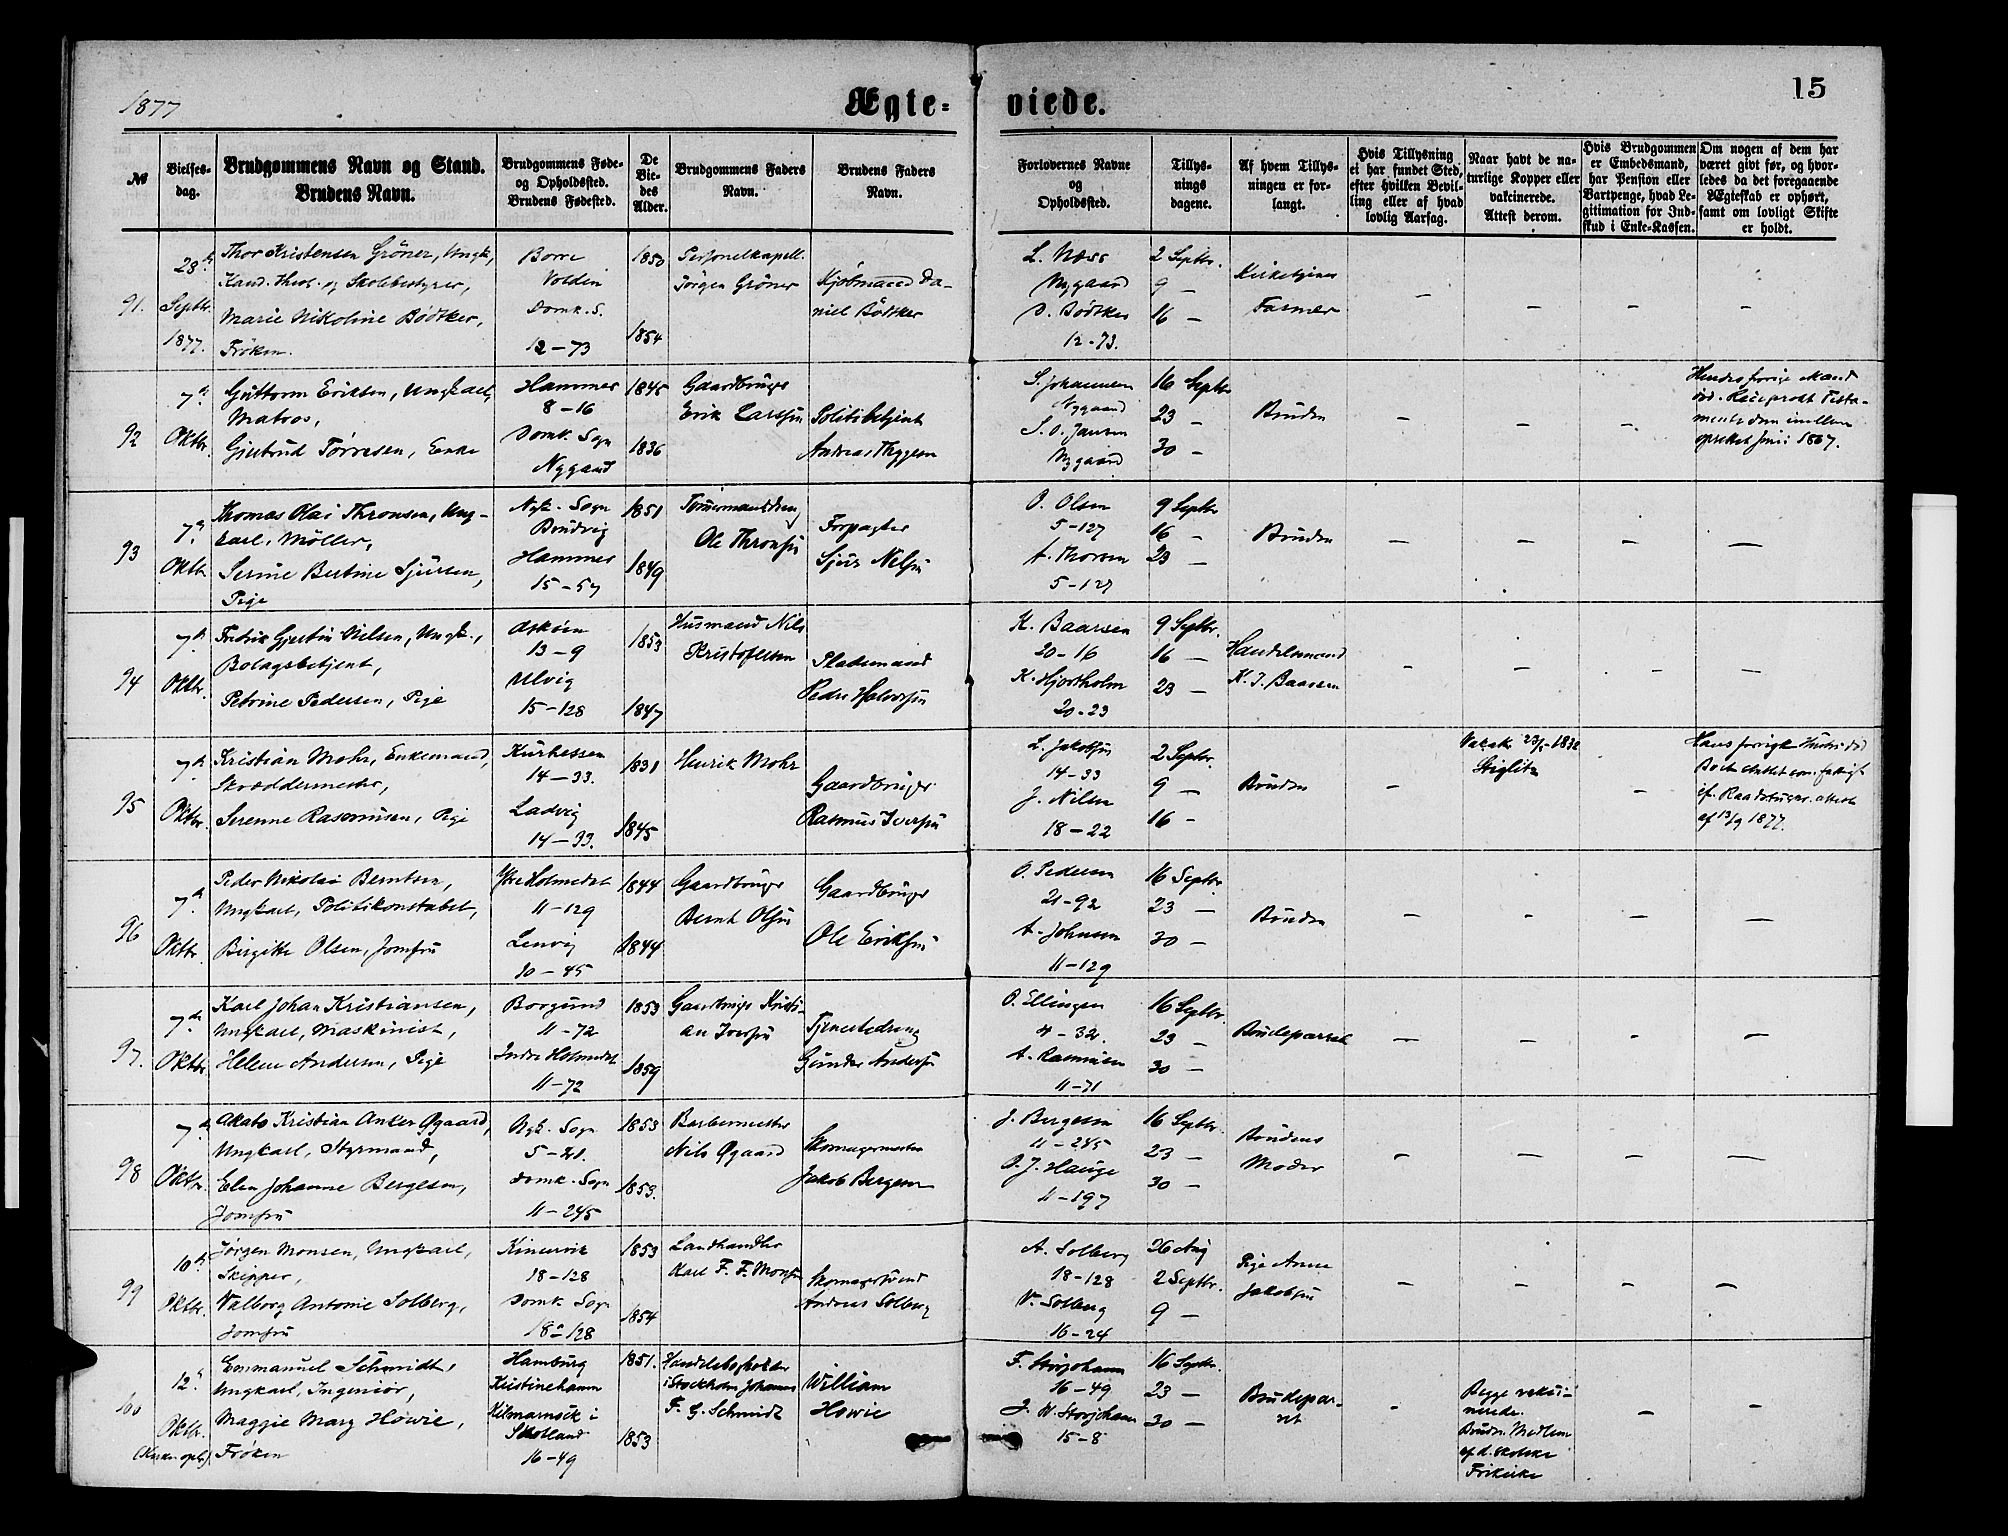 1877
Ægte-
viede.
15
№
Vielses-
dag.
Brudgommens Navn og Stand.
Brudens Navn.
Brudgommens Føde-
og Opholdssted.
Brudens Fødested.
De
Vie-
des
Alder.
Brudgommens Faders
Navn.
Brudens Faders
Navn.
Forlovernes Navne
og
Opholdssted.
Tillys-
nings
dagene.
Af hvem Tillys-
ningen er for-
langt.
Hvis Tillysning
ei har fundet Sted,
efter hvilken Bevil-
ling eller af hvad
lovlig Aarsag.
Naar havt de na-
turlige Kopper eller
vakcinerede.
Attest derom.
Hvis Brudgommen
er Embedsmand,
har Pension eller
Vartpenge, hvad Le-
gitimation for Ind-
skud i Enke-Kassen.
Om nogen af dem har
været givt før, og hvor-
ledes da det foregaaende
Ægteskab er ophørt,
samt om lovligt Skifte
er holdt.
91.
28de
Septbr.
1877.
Thor Kristensen Gröner, Ungk.,
Kand. theol. og Skolebestyrer,
Marie Nikoline Bödtker,
Fröken.
Borre
Volden
Domk. S.
12-73
1850
1854
Personelkapell.
Jörgen Gröner
Kjöbmand Da-
niel Bödtker
L. Næss
Nygaard
D. Bödtker
12-73.
2 Septbr.
9 -
16 -
Kirketjener
Fasmer
92
7de
Oktbr.
Guttorm Eriksen, Ungkarl,
Matros,
Gjertrud Törresen, Enke
Hammer
8-16
Domk. Sogn
Nygaard
1845
1836
Gaardbruger
Erik Larssen
Politibetjent
Andreas Thygesen
S. Johannesen
Nygaard
S. O. Jansen
Nygaard
16 Septbr
23 -
30 -
Bruden
Hendes forrige Mand
död. Reciprokt Testa-
mente dem imellem
oprettet Juni 1867.
93
7de
Oktbr.
Thomas Olai Thronsen, Ung-
karl, Möller,
Serine Bertine Sjursen,
Pige
Nyk. Sogn
Brudvig
Hammer
15-57
1851
1849
Tömmermanddreng
Ole Thronsen
Forpagter
Sjur Nilsen
O. Olsen
5-127
A. Thorsen
5-127
9 Septbr
16 -
23 -
Bruden
94
7de
Oktbr.
Fredrik Gjertin Nilsen, Ungk.,
Bolagsbetjent,
Petrine Pedersen, Pige
Askøen
13-9
Ulvig
15-128
1853
1847
Husmand Nils
Kristofersen
Pladsmand
Peder Halvorsen
K. Baarsen
20-16
K. Hjortholm
20-23
9 Septbr.
16 -
23 -
Handelsmand
K. J. Baarsen
95
7de
Oktbr.
Kristian Mohr, Enkemand,
Skræddermester,
Serenne Rasmussen, Pige
Kurhessen
14-33.
Ladvig
14-33.
1831
1845
Henrik Mohr
Gaardbruger
Rasmus Iversen
L. Jakobsen
14-33
J. Nilsen
18-22
2 Septbr.
9 -
16 -
Bruden
Vakak. 23/5-1832
Stiglitz
Hans forrige Hustru död
Boet sluttet som fattigt
if. Raadstuens attest
af 13/9 1877.
96
7de
Oktbr.
Peder Nikolai Berntsen,
Ungkarl, Politikonstabel,
Birgitte Olsen, Jomfru
Ytre Holmedal
11-129
Lenvig
10-45
1844
1844
Gaardbruger
Bernt Olsen
Gaardbruger
Ole Eriksen
O. Pedersen
21-92
A. Johnsen
11-129
16 Septbr.
23 -
30 -
Bruden
97.
7de
Oktbr.
Karl Johan Kristiansen,
Ungkarl, Maskinist,
Helene Andersen, Pige
Borgund
11-72
Indre Holmedal
11-72
1853
1859
Gaardbruger Kristi-
an Iversen
Tjenestedreng
Gunder Andersen
O. Ellingsen
4-32.
A. Rasmusen
11-71
16 Septbr.
23 -
30 -
Brudeparret
98
7de
Oktbr.
Mats Kristian Anker Øgaard,
Ungkarl, Styrmand,
Elen Johanne Bergesen,
Jomfru
Nyk. Sogn
5-21.
Domk. Sogn
11-245
1853
1853.
Barbermester
Nils Øgaard
Skomagermester
Jakob Bergesen
J. Bergesen
11-245
O. J. Hauge
11-197
16 Septbr.
23 -
30 -
Brudens
Moder
99
10de
Oktbr.
Jørgen Monsen, Ungkarl,
Skipper,
Valborg Antonie Solberg,
Jomfru
Kinservik
18-128
Domk. Sogn
18a-128
1853
1854
Landhandler
Karl F. F. Monsen
Skomagersvend
Andreas Solberg
A. Solberg
18-128
V. Solberg
16-24
26 Aug
2 Septbr.
9 -
Pige Anne
Jakobsen
100
12te
Oktbr.
Emmanuel Schmidt,
Ungkarl, Ingeniør,
Maggie Mary Howie,
Fröken
Hamburg
Kristinehamn
Kilmarnock i
Skotland
16-49
1851.
1853
Handelsbogholder
i Stockholm Johannes
F. G. Schmidt
William
Howie
F. Storjohann
16-49
J. W. Storjohann
15-8
16 Septbr.
23 -
30 -
Brudepar-
ret
Begge vaksi-
nerede.
Bruden Medlem
af d. skotske
Frikirke